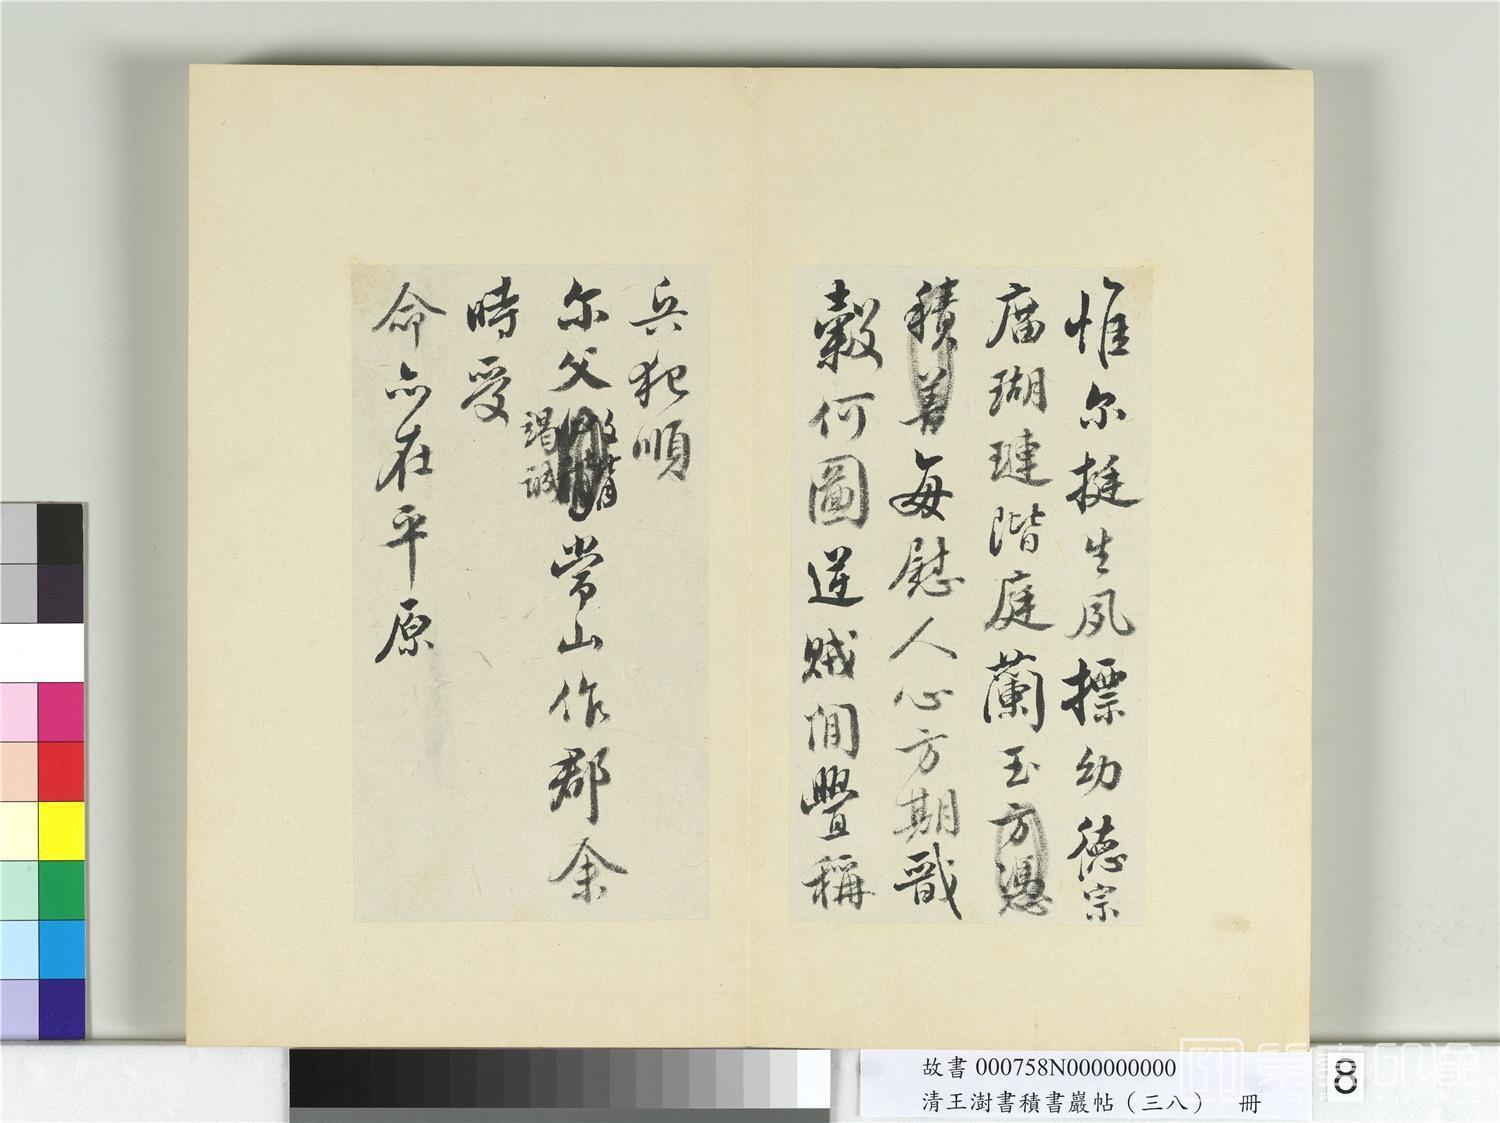 惟尔挺生夙標幼德宗
廟瑚璉階庭蘭玉方憑
積善每慰人心方期戩
穀何圖逆賊間釁稱
兵犯順
尔父
竭誠
常山作郡余
時受
命亦在平原
故書 000758N000000000
清王澍書積書巖帖（三八） 冊
8